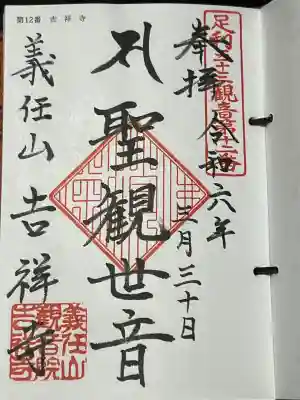 第12番 吉祥寺
足利三十三観音第十二番
奉拝 令和六年
三月三十日
聖観世音
義任山吉祥寺
義任山
観音院
吉祥寺